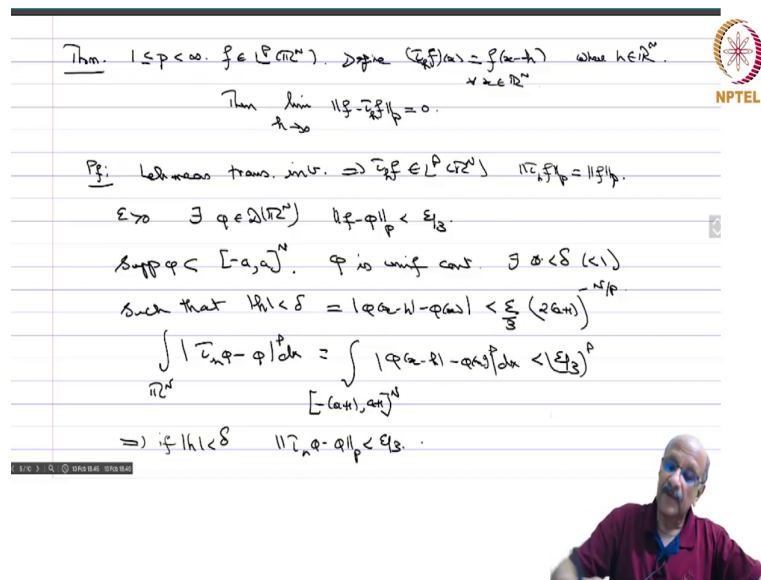 Thm. 1 ≤ p < ∞. f ∈ L^p(ℝ^N). Define (τ_h f)(x) = f(x-h) where h ∈ ℝ^N.
∀ x ∈ ℝ^N
Then lim_{h→0} ‖f - τ_h f‖_p = 0.
NPTEL
Pf: Leb meas trans. inv. ⇒ τ_h f ∈ L^p(ℝ^N) ‖τ_h f‖_p = ‖f‖_p.
ε>0 ∃ φ ∈ D(ℝ^N) ‖f-φ‖_p < ε/3.
supp φ ⊂ [-a,a]^N. φ is unif cont. ∃ 0<δ (<1)
such that |h|<δ = |φ(x-h)-φ(x)| < ε/3 (2(a+1))^{-N/p}
∫_{ℝ^N} |τ_h φ - φ|^p dx = ∫_{[-(a+1), a+1]^N} |φ(x-h) - φ(x)|^p dx < (ε/3)^p
⇒ if |h|<δ ‖τ_h φ - φ‖_p < ε/3.
5/10 13 Feb 18:45 13 Feb 18:45